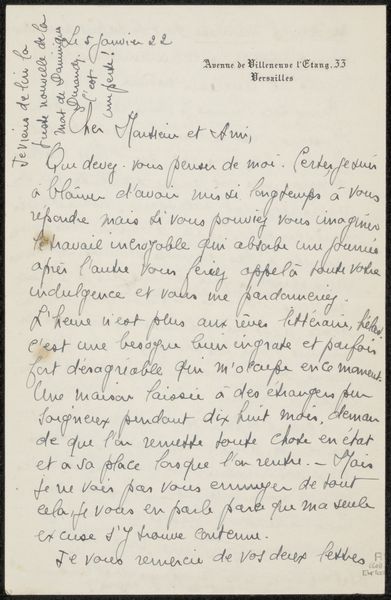 Avenue de Villeneuve l'Etang, 33
Versailles
Le 5 Janvier 22
Je viens de lire la
triste nouvelle de la
mort de Dominique
Durandy.
C'est
une perte!
Cher Monsieur et Ami,
Que devez-vous penser de moi. Certes je suis
à blâmer d'avoir mis si longtemps à vous
répondre mais si vous pouviez vous imaginer
le travail incroyable qui absorbe une journée
après l'autre vous feriez appel à toute votre
indulgence et vous me pardonneriez.
L'heure n'est plus aux rêves littéraires, hélas!
c'est une besogne bien ingrate et parfois
fort désagréable qui m'occupe en ce moment.
Une maison laissée à des étrangers peu
soigneux pendant dix huit mois, deman
de que l'on remette toute chose en état
et à sa place lorsque l'on rentre. — Mais
je ne vais pas vous ennuyer de tout
cela, je vous en parle parce que ma seule
excuse s'y trouve contenue.
Je vous remercie de vos deux lettres